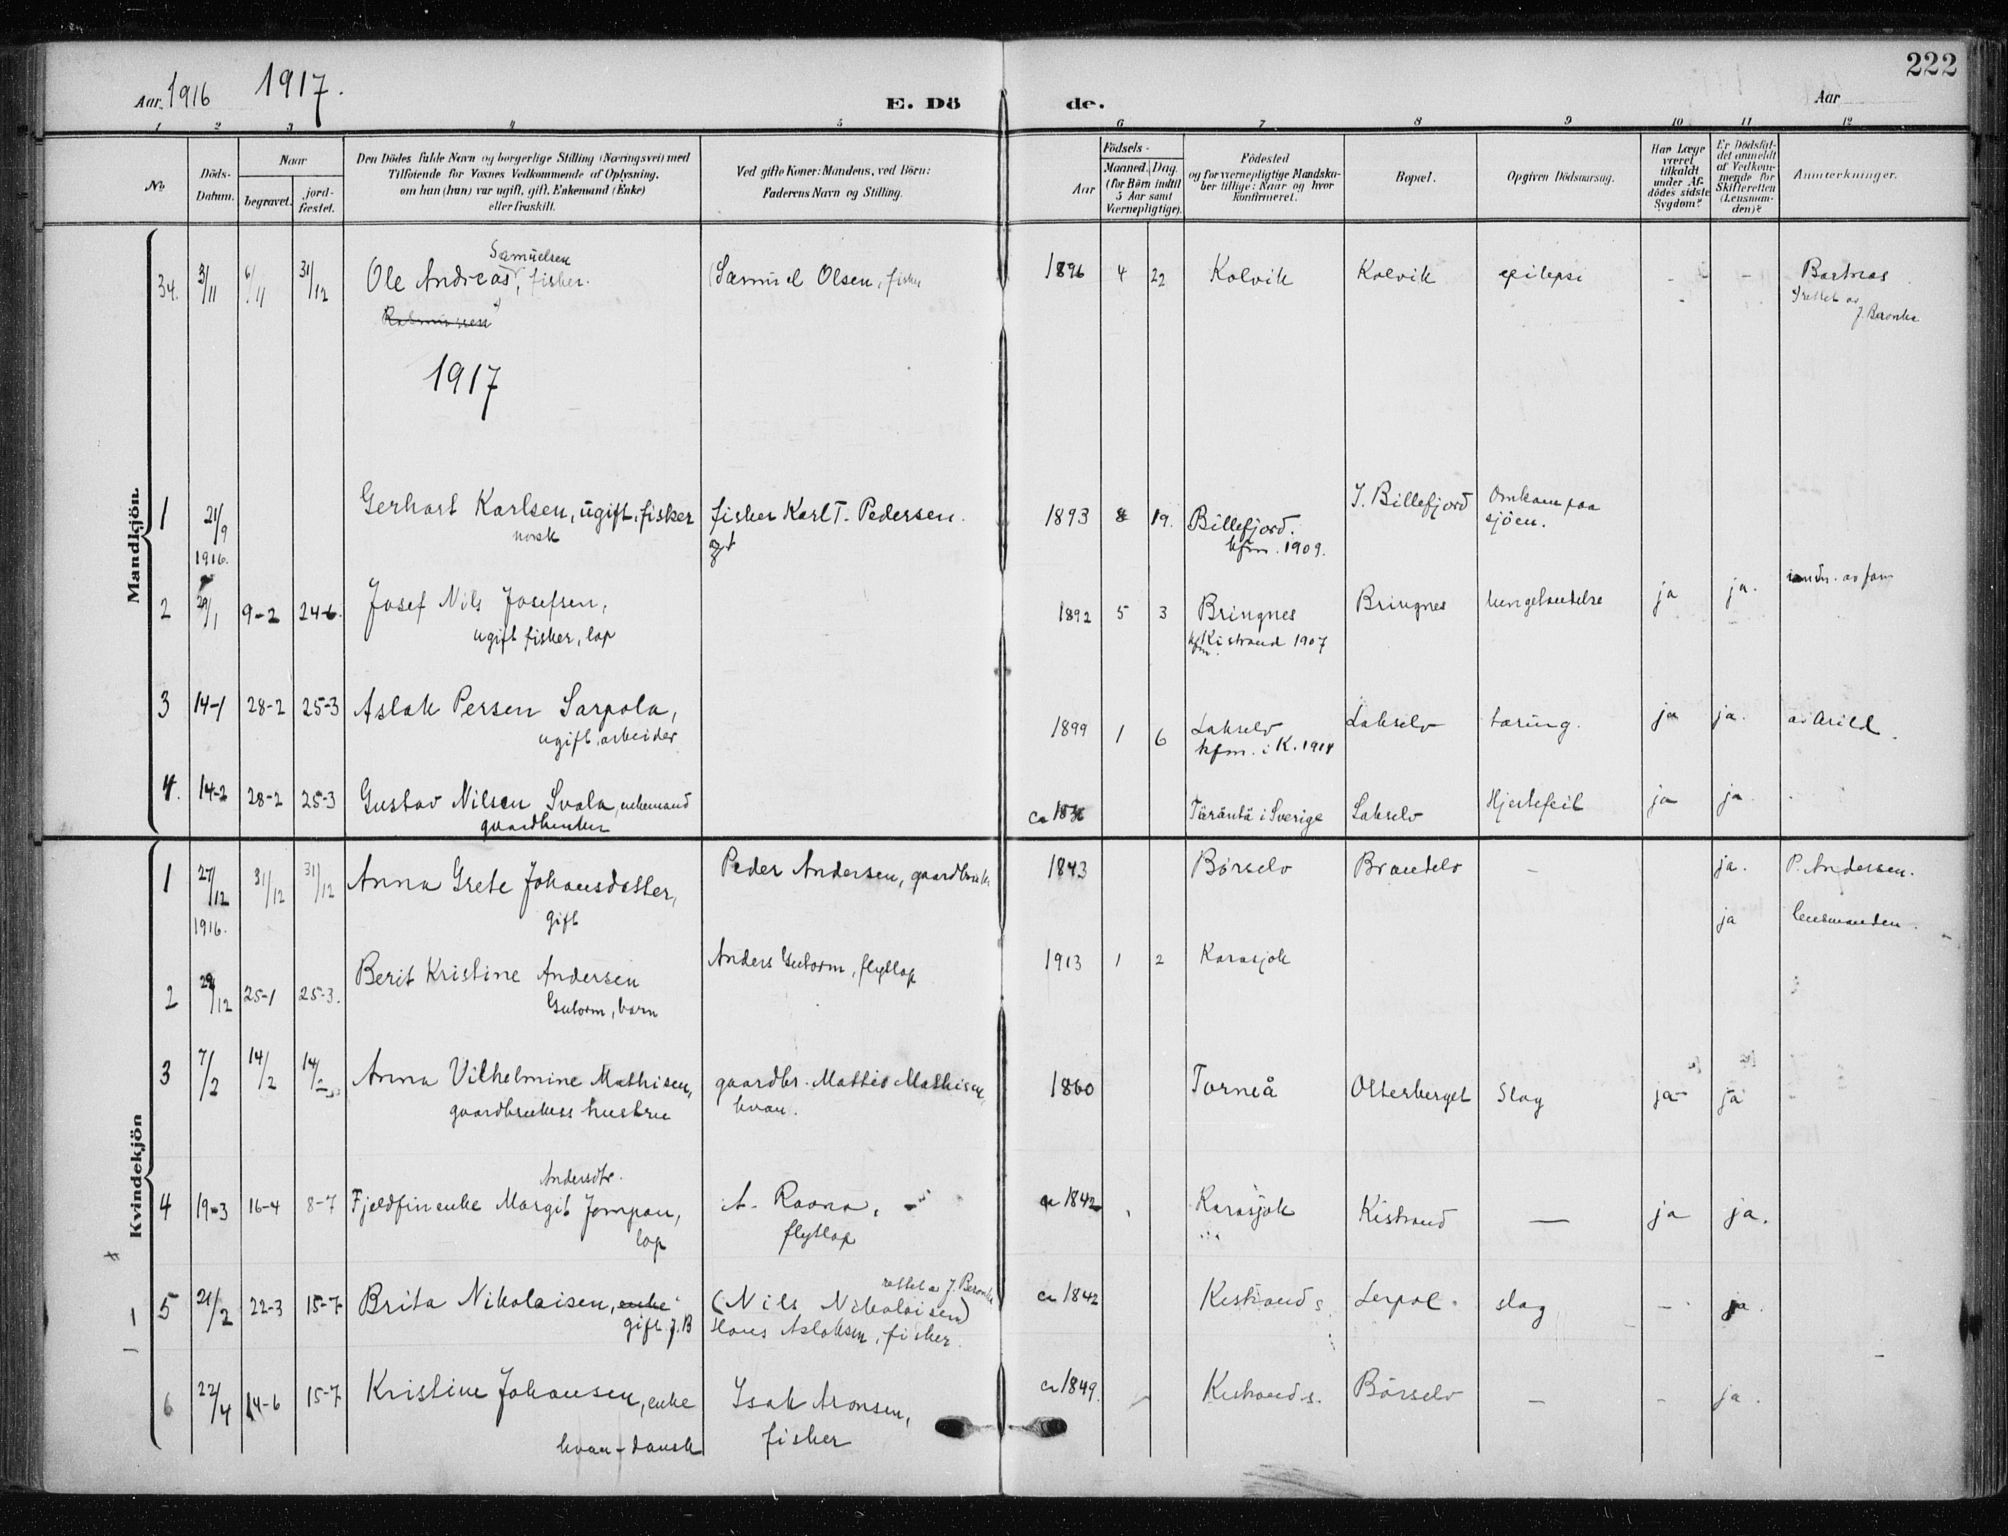 222
Aar 1916 1917.
E. Döde.
Aar
1 2 3 4 5 6 7 8 9 10 11 12
No.
Döds-Datum.
Naar
begravet.
jord-fæstet.
Den Dödes fulde Navn og borgerlige Stilling (Næringsvei) med
Tilföiende for Voxnes Vedkommende af Oplysning,
om han (hun) var ugift, gift, Enkemand (Enke)
eller fraskilt.
Ved gifte Koner: Mandens, ved Börn:
Faderens Navn og Stilling.
Födsels-
Aar
Maaned. Dag.
(for Börn indtil
5 Aar samt
Værnepligtige).
Födested
og for værnepligtige Mandska-
ber tillige: Naar og hvor
konfirmeret.
Bopæl.
Opgiven Dödsaarsag.
Har Læge
været
tilkaldt
under Af-
dödes sidste
Sygdom?
Er Dödsfal-
det anmeldt
af Vedkom-
mende for
Skifteretten
(Lensman-
den)?
Anmærkninger.
Mandkjön.
34. 3/11 6/11 31/12 Ole Andreas Samuelsen, fisher. (Samuel Olsen, fisker 1896 4 22 Kolvik Kolvik epilepsi - -
J. Beronka
1917
1 21/9 1916. Gerhart Karlsen, ugift, fisker fisher Karl T. Pedersen. 1893 8 19. Billefjord. I. Billefjord Omkom paa
norsk kfm. 1909. sjöen.
2 29/1 9-2 24-6. Josef Nils Josefsen, 1892 5 3 Bringnes Bringnes lungetændelse ja ja.
ugift fisker, lap kfm. Kistrand 1907
3 14-1 28-2 25-3 Aslak Persen Sarpola, 1899 1 6 Lakselv Lakselv tæring. ja ja.
ugift, arbeider kfm. i K. 1914
4. 14-2 28-2 25-3 Gustav Nilsen Svala, enkemand Täräntä i Sverige Lakselv Hjertefeil ja ja
gaardbruker
Kvindekjön
1 27/12 1916. 31/12 31/12 Anna Grete Johansdatter, Peder Andersen, gaardbruk. 1843 Börselv Brændelv - ja. P. Andersen.
gift ja lensmanden.
2 29/12 25-1 25-3. Berit Kristine Andersen Anders Guttorm, flytlap 1913 1 2 Karasjok
Guttorm, barn
3 7/2 14/2 14/2 Anna Vilhelmine Mathisen, gaardbr. Mattis Mathisen, 1860 Torneå Otterberget Slag ja ja
gaardbrukers hustru kvæn.
4 19-3 16-4 8-7 Fjeldfinenke Margit Andersdtr. Jompan, A. Raona, - ca 1842 Karasjok Kistrand — ja ja.
lap flytlap
5 21/2 22-3 15-7 Brita Nikolaisen, enke (Nils Nikolaisen) rettet av J. Beronka ca 1842 Kistrand s Lerpol. slag - ja.
gift J.B Hans Aslaksen, fisker.
6 22/4 14-6 15-7 Kristine Johansen, enke Isak Aronsen, ca 1849. Kistrand s. Börselv - - ja.
kvæn - dansk fisker